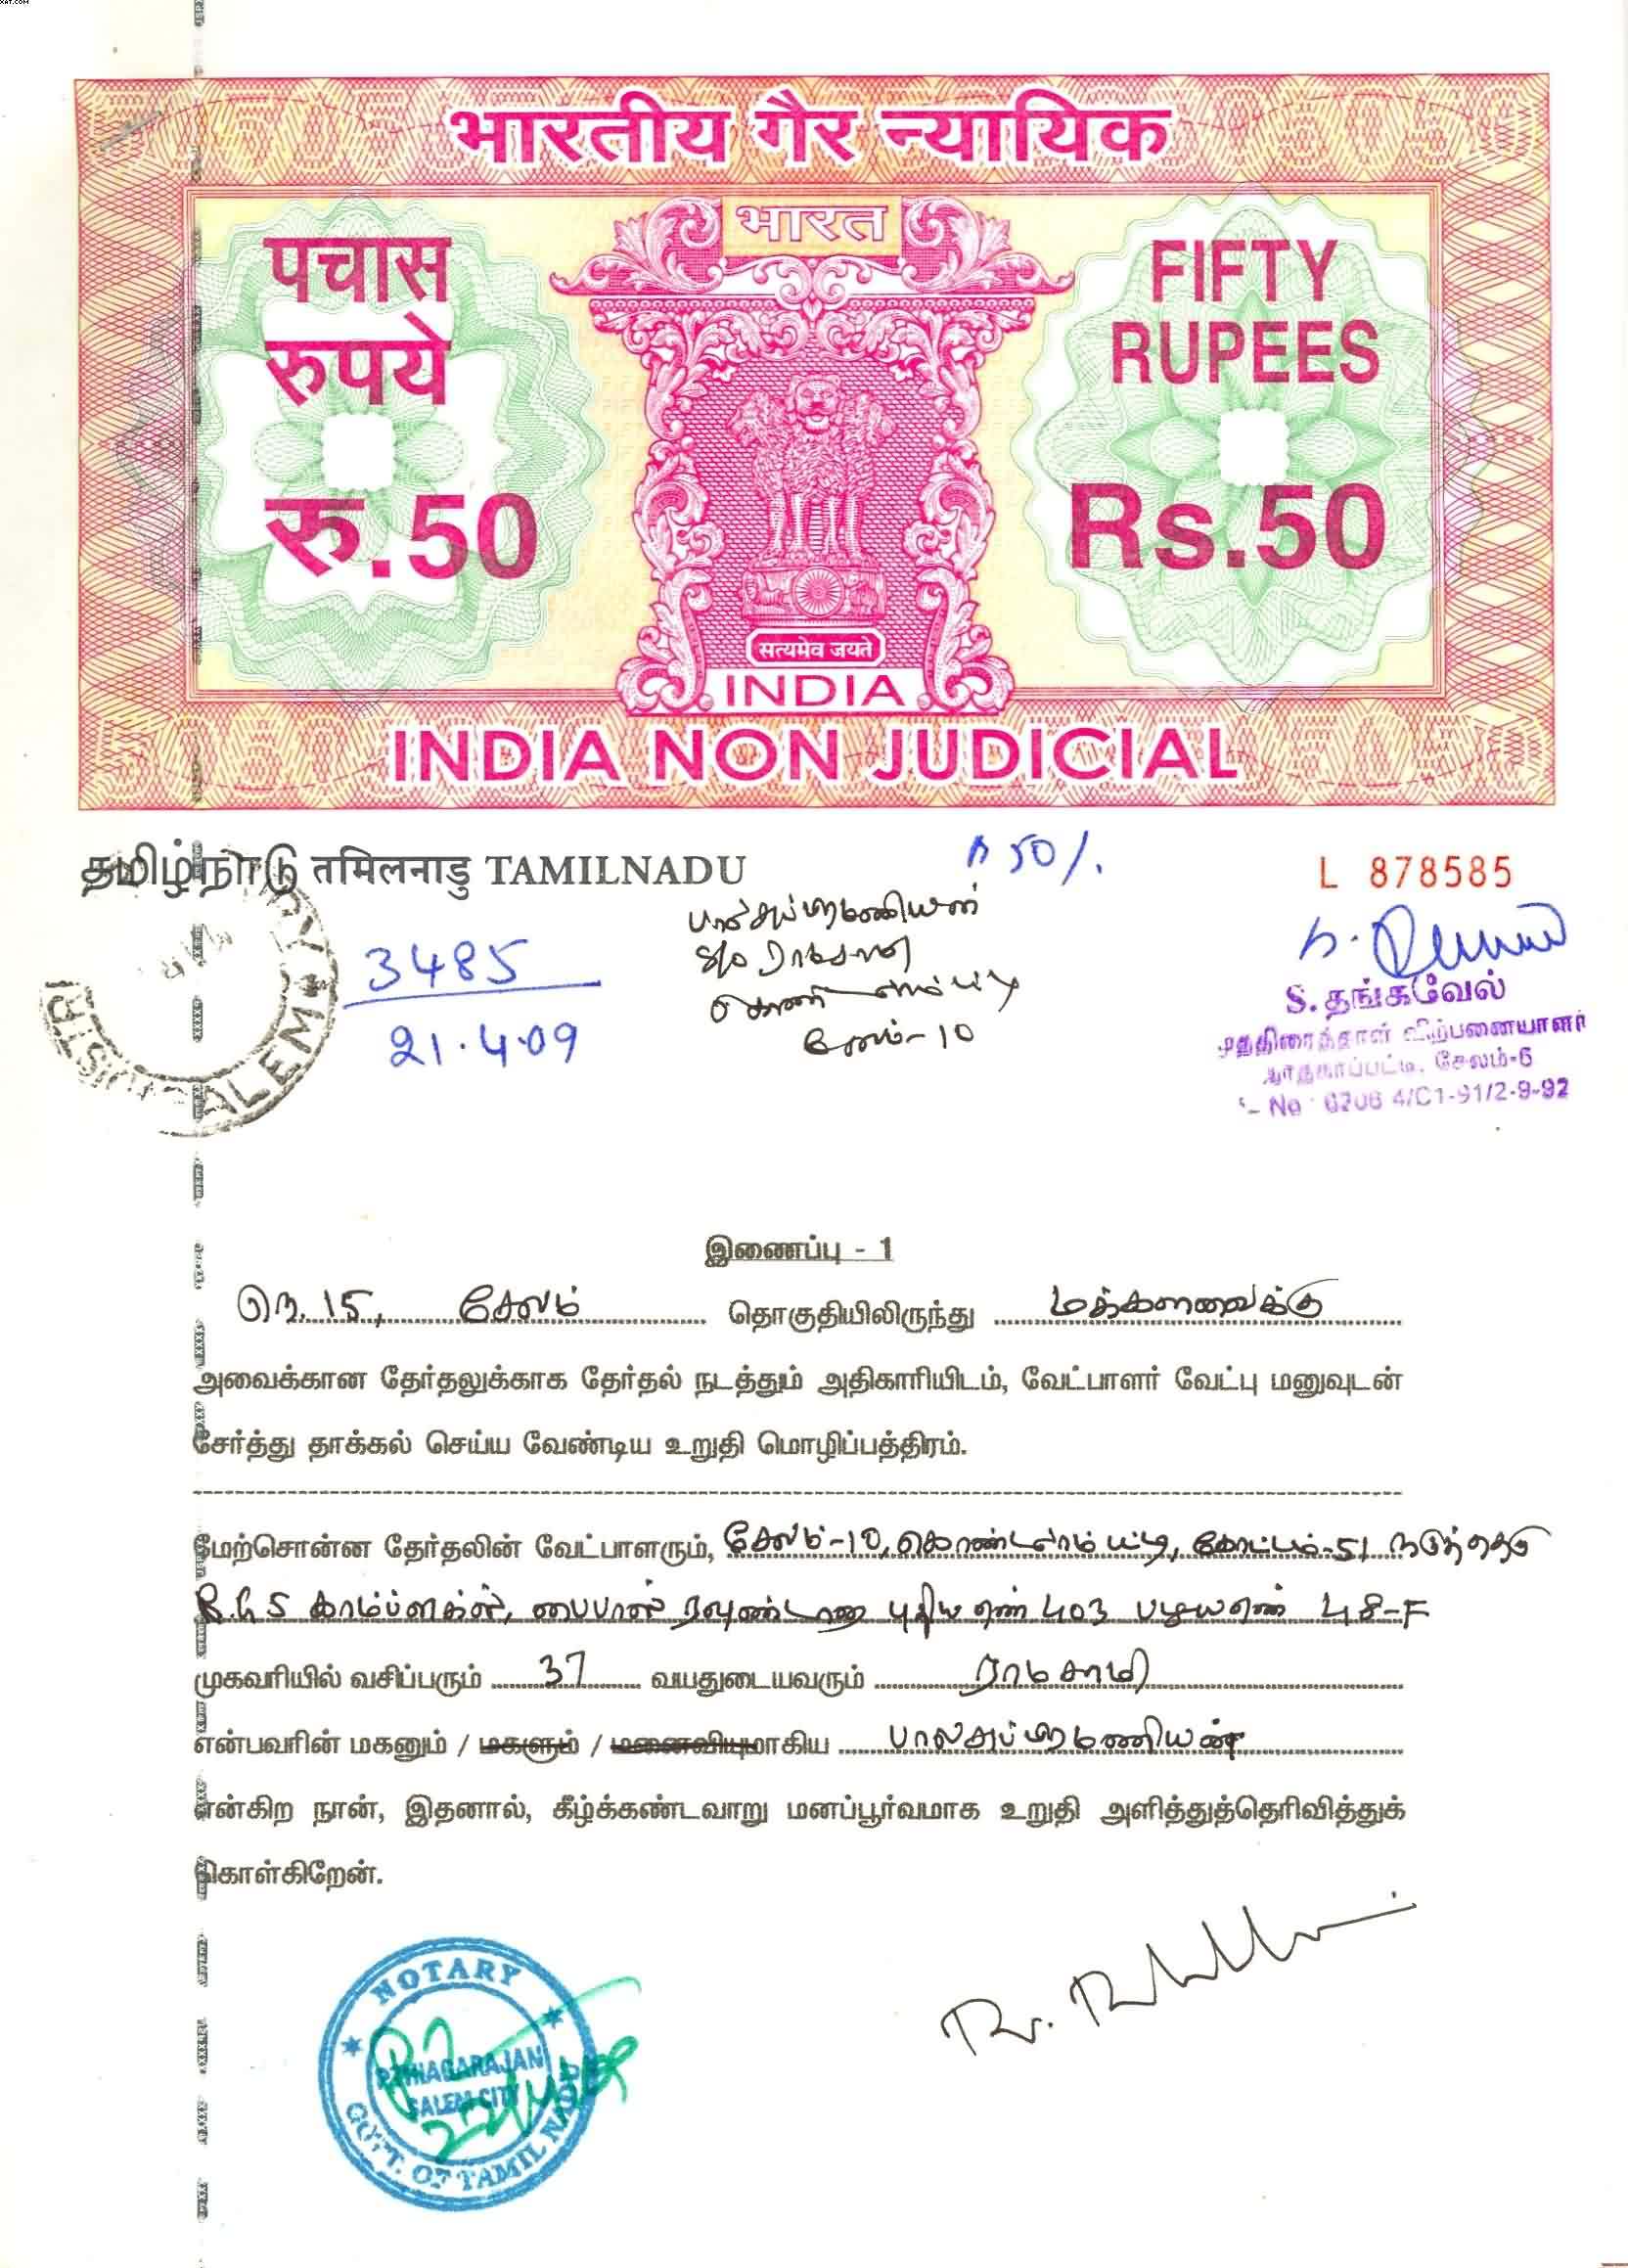 XAT.COM
भारतीय गैर न्यायिक
भारत
पचास
रुपये
FIFTY
RUPEES
रु.50
Rs.50
सत्यमेव जयते
INDIA
INDIA NON JUDICIAL
தமிழ்நாடு तमिलनाडु TAMILNADU
50/.
L 878585
3485
21.4.09
பாலசுப்பிரமணியன்
S/o ராமசாமி
சேலம்-10
SALEM
S. தங்கவேல்
முத்திரைத்தாள் விற்பனையாளர்
சேலம்-6
4/C1-91/2-9-92
இணைப்பு - 1
நெ. 15, சேலம் தொகுதியிலிருந்து மக்களவைக்கு
அவைக்கான தேர்தலுக்காக தேர்தல் நடத்தும் அதிகாரியிடம், வேட்பாளர் வேட்பு மனுவுடன்
சேர்த்து தாக்கல் செய்ய வேண்டிய உறுதி மொழிப்பத்திரம்.
மேற்சொன்ன தேர்தலின் வேட்பாளரும், சேலம்-10, கொண்டலாம்பட்டி, கோட்டம்-51
R.G.S காம்ப்ளக்ஸ், பைபாஸ் ரவுண்டானா புதிய எண் 403 பழைய எண் 48-F
முகவரியில் வசிப்பரும் 37 வயதுடையவரும் ராமசாமி
என்பவரின் மகனும் / மகளும் / மனைவியுமாகிய பாலசுப்பிரமணியன்
என்கிற நான், இதனால், கீழ்க்கண்டவாறு மனப்பூர்வமாக உறுதி அளித்துத்தெரிவித்துக்
கொள்கிறேன்.
NOTARY
SALEM CITY
GOVT. OF TAMIL NADU